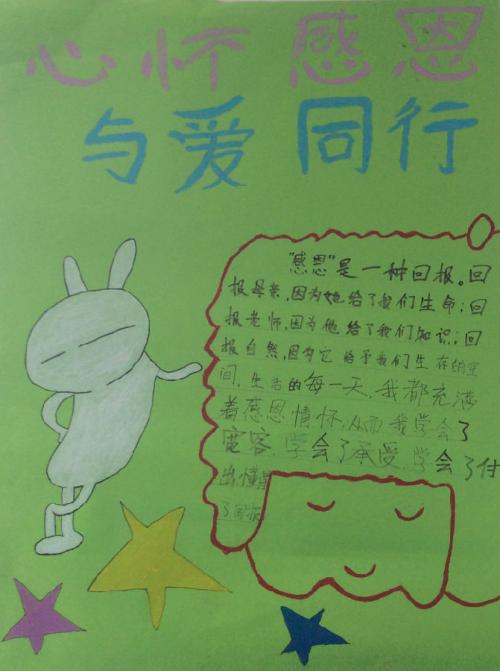 心怀感恩
与爱同行
“感恩”是一种回报。回
报母亲,因为她给了我们生命;回
报老师,因为他给了我们知识;回
报自然,因为它给予我们生存的空
间,生活的每一天,我都充满
着感恩情怀,从而我学会了
宽容,学会了承受,学会了付
出,懂得
了回报